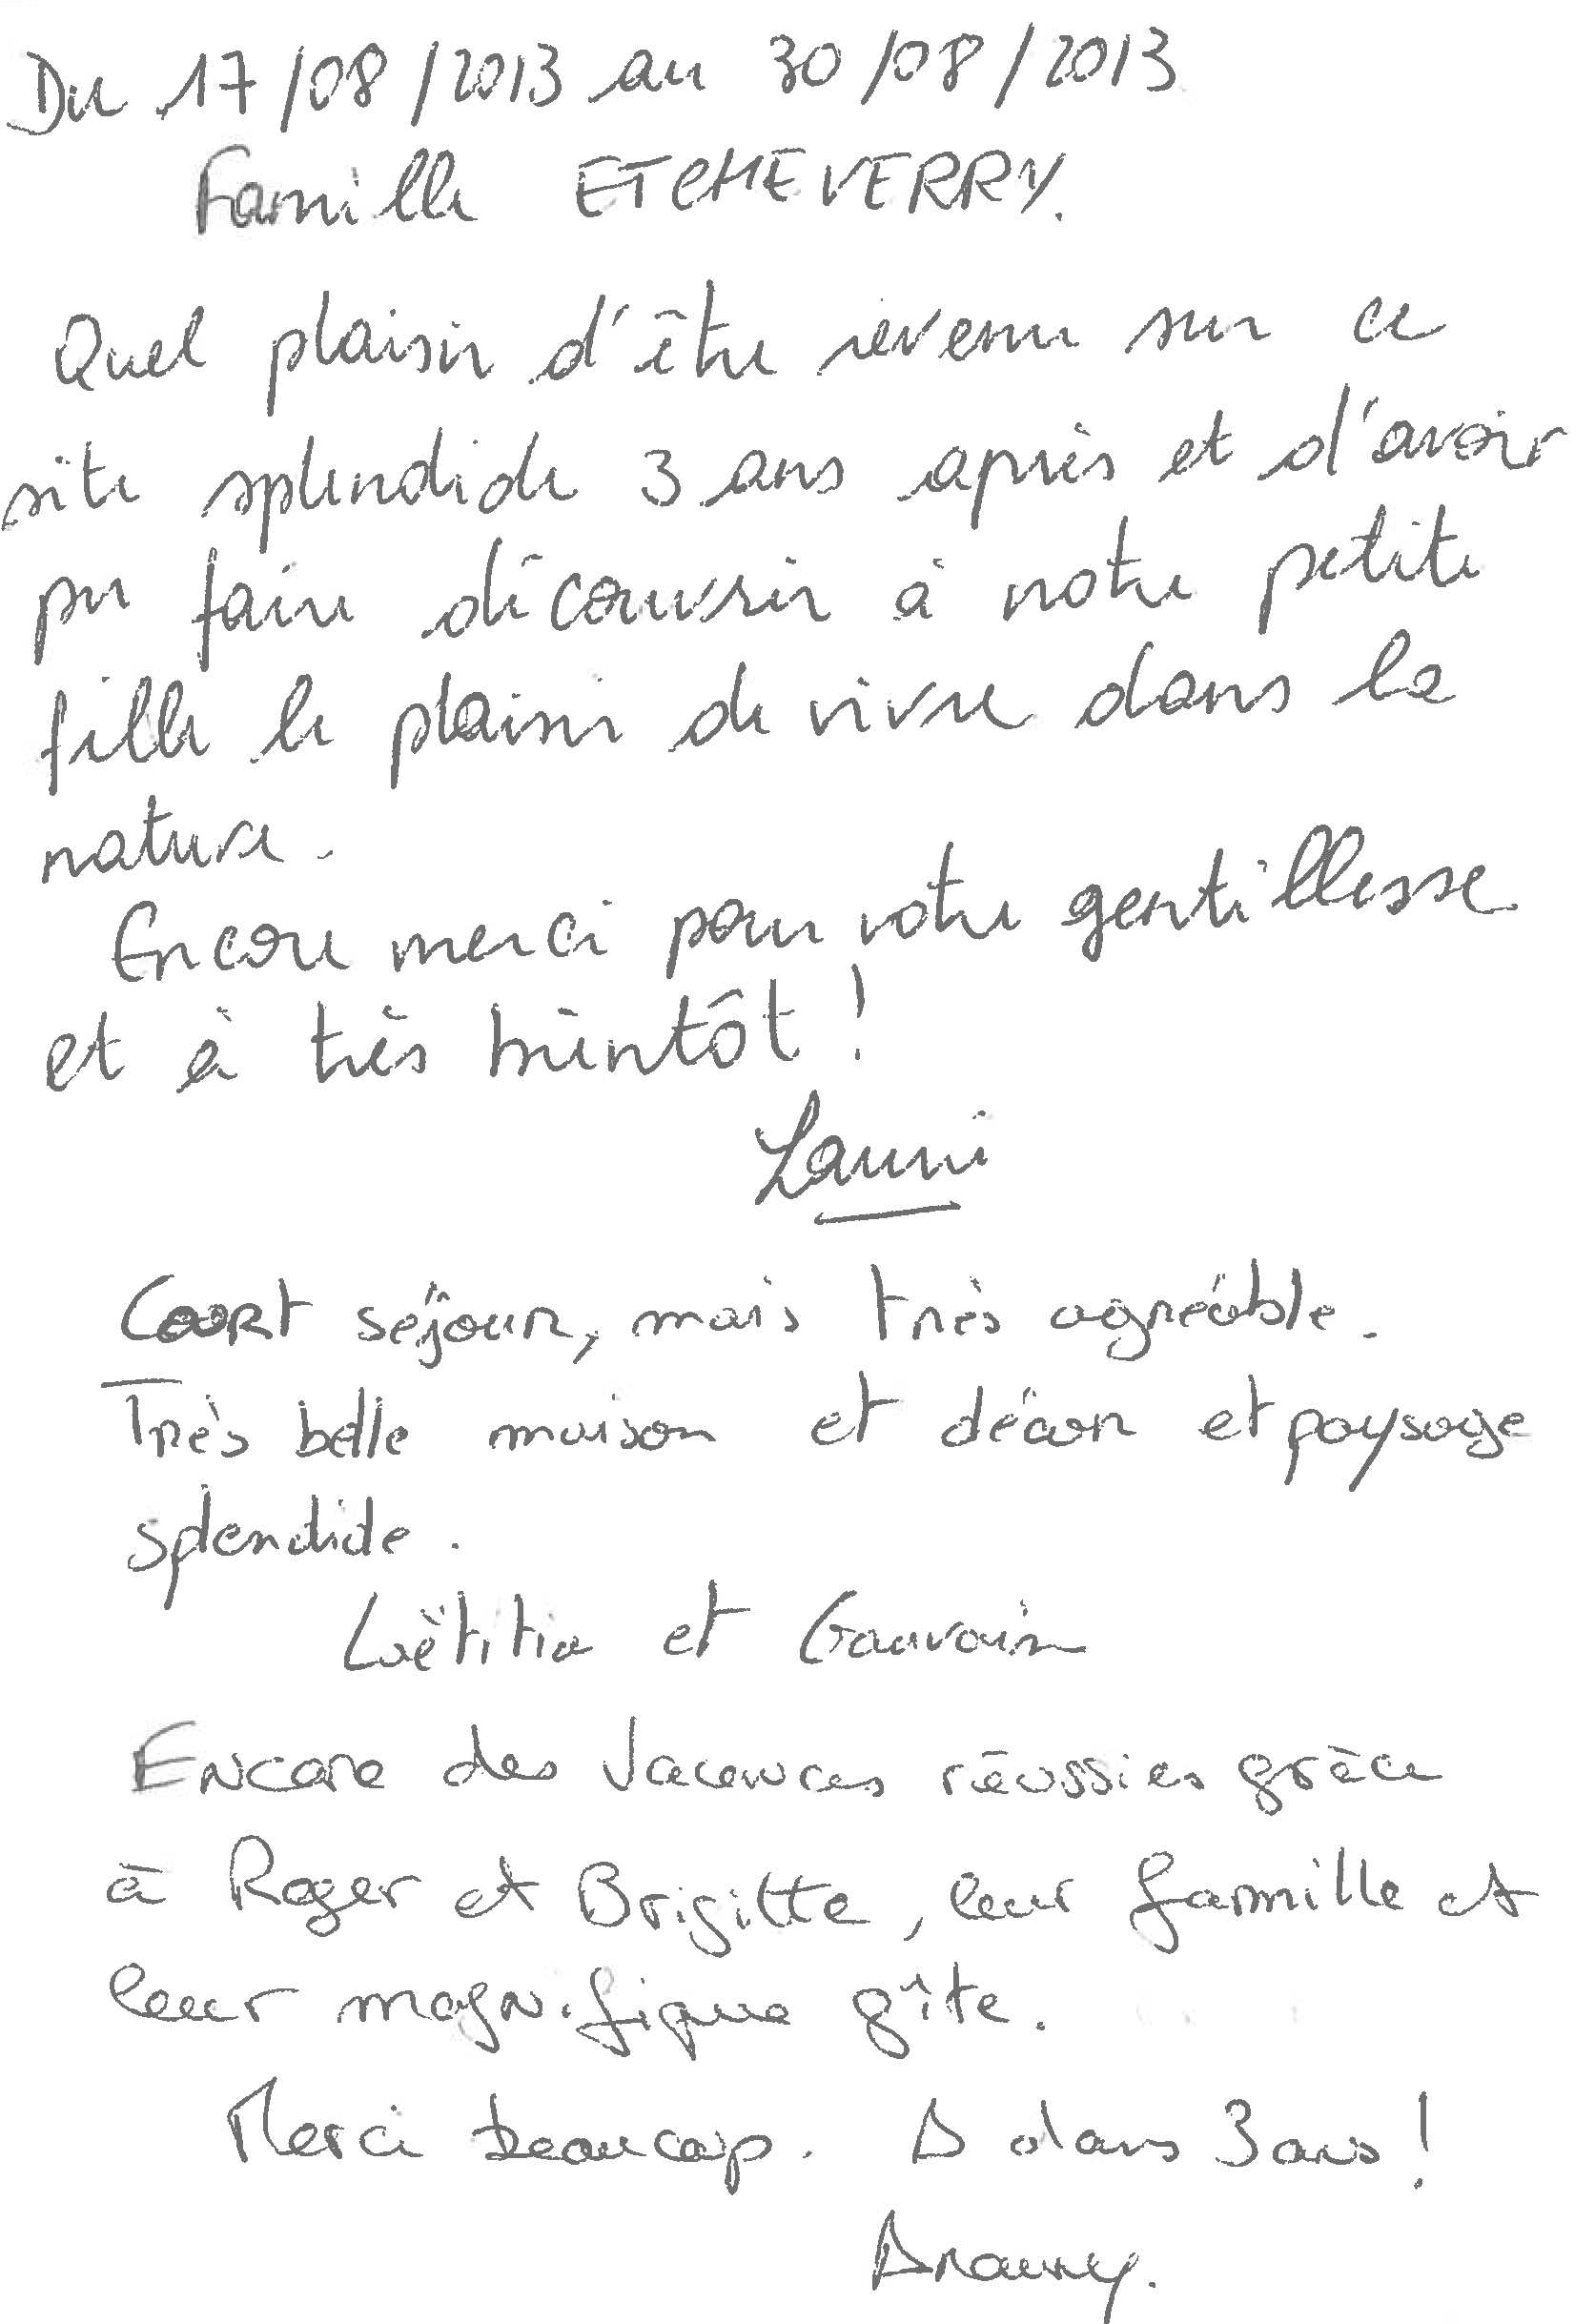 Du 17/08/2013 au 30/08/2013
Famille ETCHEVERRY.
Quel plaisir d'être revenu sur ce
site splendide 3 ans après et d'avoir
pu faire découvrir à notre petite
fille le plaisir de vivre dans la
nature.
Encore merci pour votre gentillesse
et à très bientôt !
Court séjour, mais très agréable.
Très belle maison et décor et paysage
splendide.
Laëtitia et Gauvain
Encore des vacances réussies grâce
à Roger et Brigitte, leur famille et
leur magnifique gîte.
Merci beaucoup. A dans 3 ans !